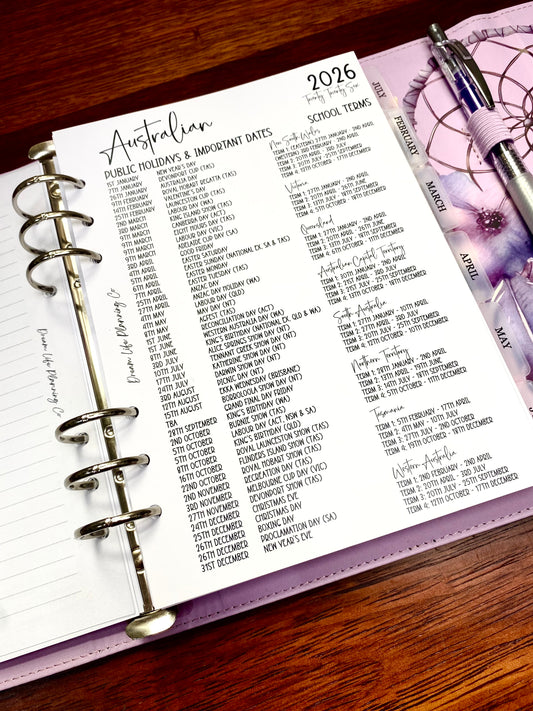 Australian
PUBLIC HOLIDAYS & IMPORTANT DATES
1ST JANUARY NEW YEAR'S DAY
7TH JANUARY DEVONPORT CUP (TAS)
26TH JANUARY AUSTRALIA DAY
9TH FEBRUARY ROYAL HOBART REGATTA (TAS)
14TH FEBRUARY VALENTINE'S DAY
25TH FEBRUARY LAUNCESTON CUP (TAS)
2ND MARCH LABOUR DAY (WA)
3RD MARCH KING ISLAND SHOW (TAS)
9TH MARCH CANBERRA DAY (ACT)
9TH MARCH EIGHT HOURS DAY (TAS)
9TH MARCH LABOUR DAY (VIC)
9TH MARCH ADELAIDE CUP (SA)
3RD APRIL GOOD FRIDAY
4TH APRIL EASTER SATURDAY
5TH APRIL EASTER SUNDAY (NATIONAL EX. SA & TAS)
EASTER MONDAY
EASTER TUESDAY (TAS)
25TH APRIL ANZAC DAY
27TH APRIL ANZAC DAY HOLIDAY (WA)
4TH MAY LABOUR DAY (QLD)
4TH MAY MAY DAY (NT)
AGFEST (TAS)
RECONCILIATION DAY (ACT)
1ST JUNE WESTERN AUSTRALIA DAY (WA)
8TH JUNE KING'S BIRTHDAY (NATIONAL EX. QLD & WA)
ALICE SPRINGS SHOW DAY (NT)
TENNANT CREEK SHOW (NT)
KATHERINE SHOW (NT)
DARWIN SHOW (NT)
PICNIC DAY (NT)
EKKA WEDNESDAY (BRISBANE)
BORROLOOLA SHOW DAY (NT)
TBA GRAND FINAL FRIDAY
28TH SEPTEMBER KING'S BIRTHDAY (WA)
2ND OCTOBER BURNIE SHOW (TAS)
5TH OCTOBER LABOUR DAY (ACT, NSW & SA)
5TH OCTOBER KING'S BIRTHDAY (QLD)
8TH OCTOBER ROYAL LAUNCESTON SHOW (TAS)
16TH OCTOBER FLINDERS ISLAND SHOW (TAS)
22ND OCTOBER ROYAL HOBART SHOW (TAS)
2ND NOVEMBER RECREATION DAY (TAS)
3RD NOVEMBER MELBOURNE CUP (VIC)
27TH NOVEMBER DEVONPORT SHOW (TAS)
24TH DECEMBER CHRISTMAS EVE
25TH DECEMBER CHRISTMAS DAY
26TH DECEMBER BOXING DAY
26TH DECEMBER PROCLAMATION DAY (SA)
31ST DECEMBER NEW YEAR'S EVE
2026
Twenty Twenty Six
SCHOOL TERMS
New South Wales
TERM 1: (EASTERN) 27TH JANUARY - 2ND APRIL
(WESTERN) 3RD FEBRUARY - 2ND APRIL
TERM 3: 20TH JULY - 25TH SEPTEMBER
TERM 4: 12TH OCTOBER - 17TH DECEMBER
Victoria
TERM 1: 27TH JANUARY - 2ND APRIL
TERM 2: 20TH APRIL - 26TH JUNE
TERM 3: 13TH JULY - 18TH SEPTEMBER
TERM 4: 5TH OCTOBER - 18TH DECEMBER
Queensland
TERM 1: 27TH JANUARY - 2ND APRIL
TERM 2: 20TH APRIL - 26TH JUNE
TERM 3: 13TH JULY - 18TH SEPTEMBER
TERM 4: 6TH OCTOBER - 11TH DECEMBER
Australian Capital Territory
South Australia
TERM 1: 27TH JANUARY - 10TH APRIL
TERM 2: 27TH APRIL - 3RD JULY
TERM 3: 20TH JULY - 25TH SEPTEMBER
TERM 4: 12TH OCTOBER - 11TH DECEMBER
Northern Territory
Tasmania
TERM 1: 5TH FEBRUARY - 17TH APRIL
TERM 2: 4TH MAY - 10TH JULY
TERM 4: 19TH OCTOBER - 18TH DECEMBER
Western Australia
TERM 1: 2ND FEBRUARY - 2ND APRIL
TERM 2: 20TH APRIL - 3RD JULY
TERM 3: 20TH JULY - 25TH SEPTEMBER
TERM 4: 12TH OCTOBER - 17TH DECEMBER
Dream Life Planning Co
Dream Life Planning Co
JULY
FEBRUARY
MARCH
APRIL
MAY